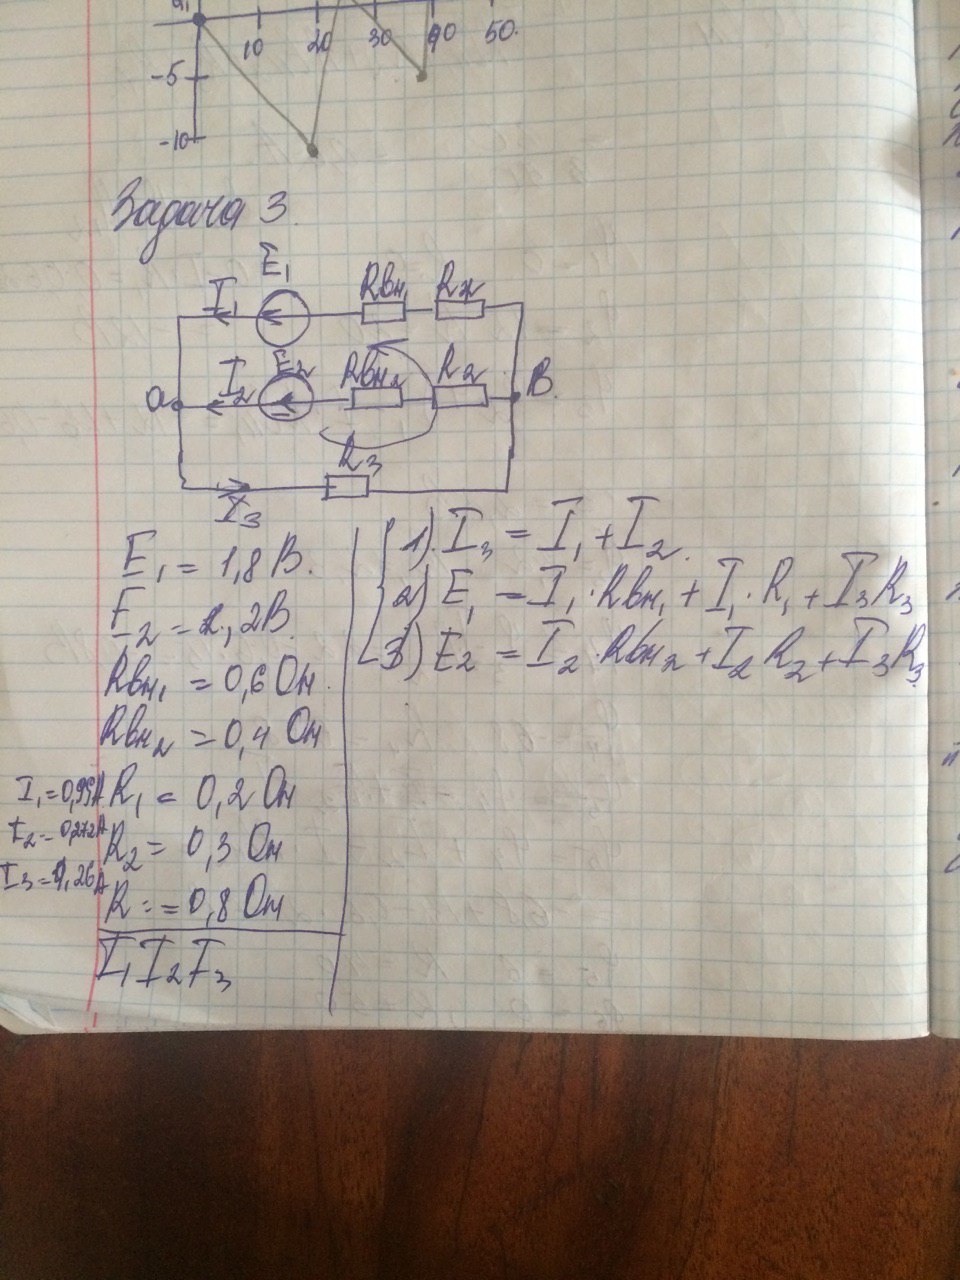 10 20 30 40 50.
-5
-10
Задача 3.
E₁
I₁ Rвн Rн
I₂ E₂ Rвн₂ R₂
a B.
R₃
I₃
E₁ = 1,8 В.
E₂ = 1,2В.
Rвн₁ = 0,6 Ом.
Rвн₂ = 0,4 Ом
I₁=0,99А R₁ = 0,2 Ом
I₂= 0,272А R₂ = 0,3 Ом
I₃=1,26А R = 0,8 Ом
I₁ I₂ I₃
1) I₃ = I₁ + I₂.
2) E₁ = I₁ · Rвн₁ + I₁ · R₁ + I₃R₃
3) E₂ = I₂ · Rвн₂ + I₂ R₂ + I₃R₃